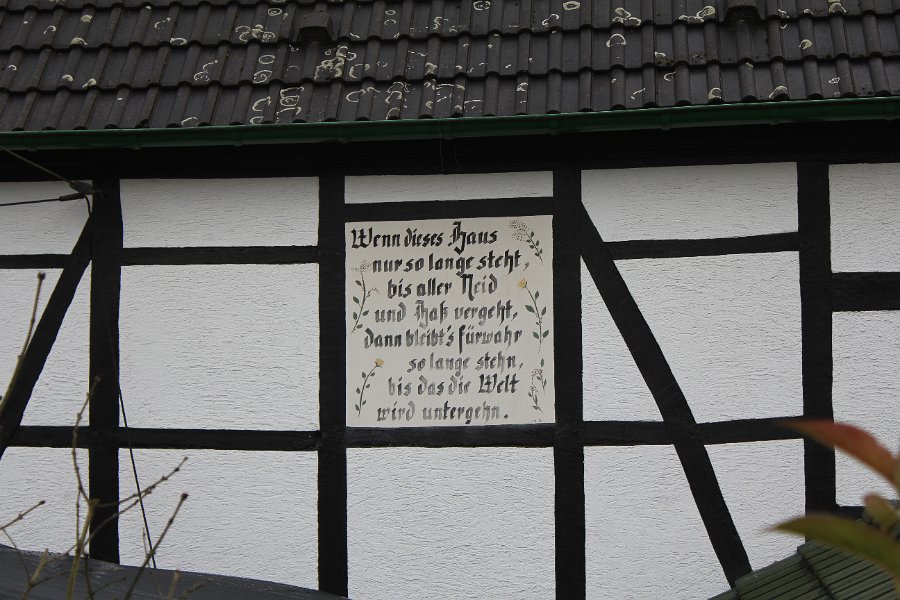 Wenn dieses Haus
nur so lange steht
bis aller Neid
und Haß vergeht,
dann bleibt's fürwahr
so lange stehn,
bis das die Welt
wird untergehn.